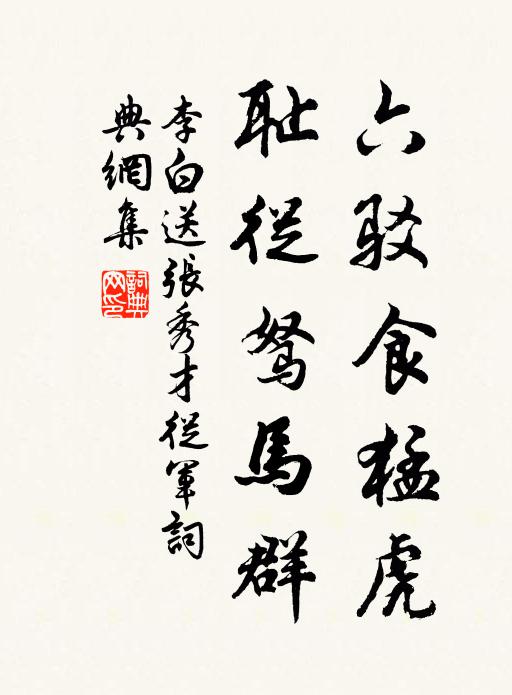 六驳食猛虎
耻從驽馬群
李白送張秀才從軍詞
典網集
詞典网印